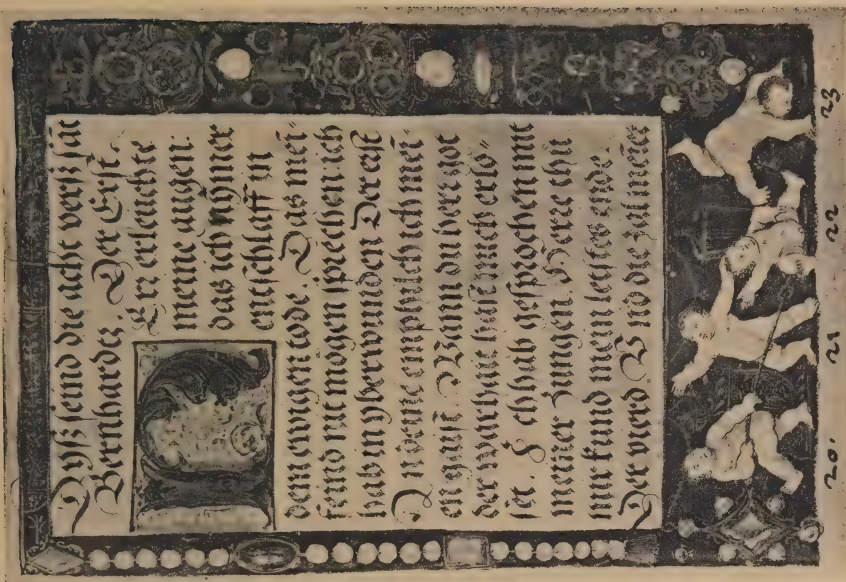 Dyß seind die acht verß sāt
Bernhardꝛ. Der Erst.
HErr erleuchte
meine augen:
das ich nymer
entschlaff in
dem ewigen tode. Das mei-
feind nit mögen sprechen ich
hab in yberwunden Der erst
In deine emphilch ich mei-
en gaist. Wann du herr got
der warhait hast mich erlö-
set. Ich hab gesprochen mit
meiner zungen. Herre thu
mir kund mein letstes ende.
Der vierd. Und die zal meiner
20. 21 22 23